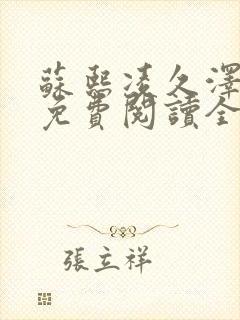 蘇熙凌久澤
免費閱讀全
張立祥